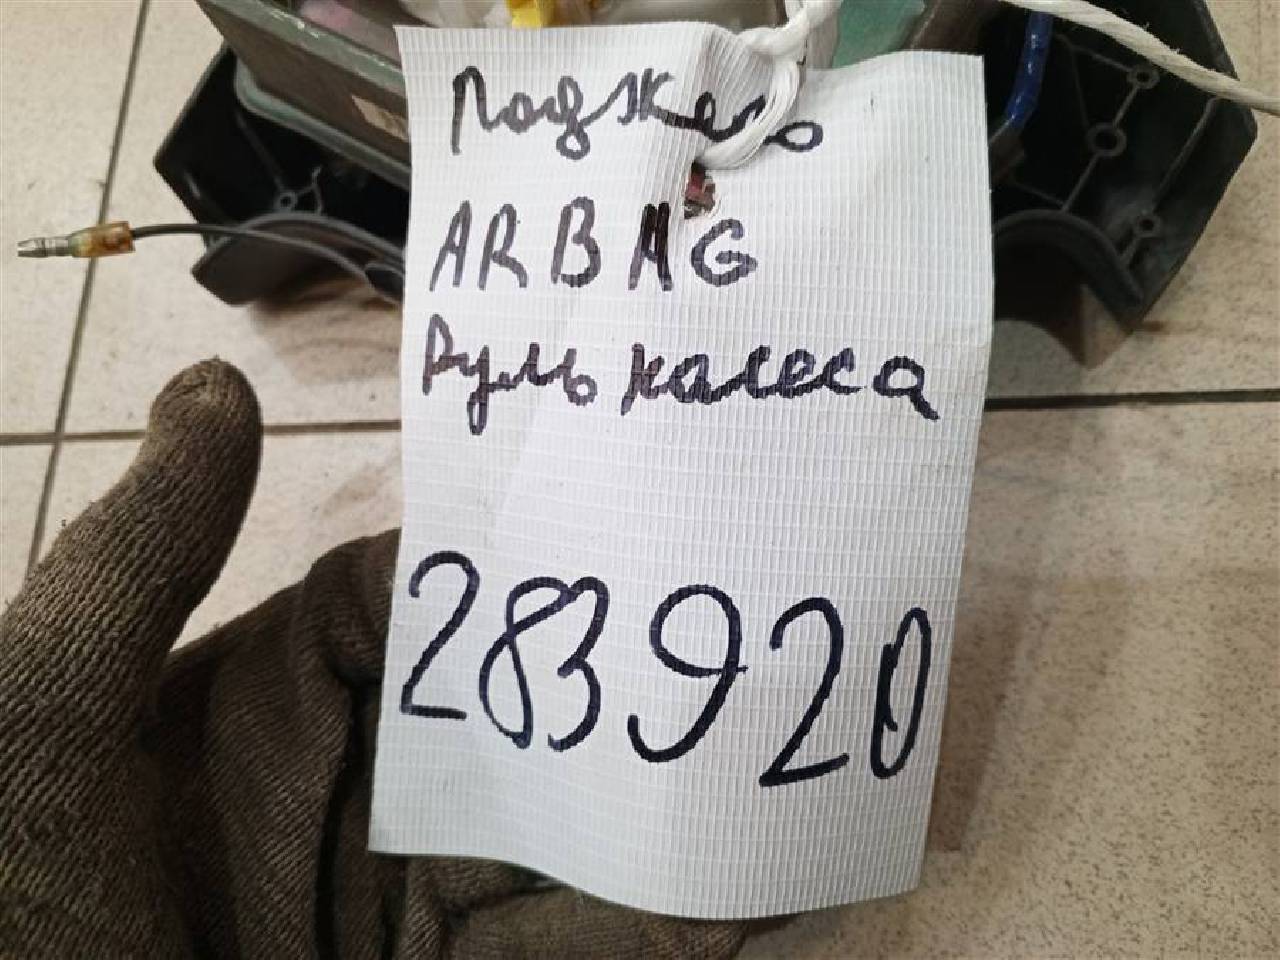 Поджеро
ARBAG
Руль калеса
283920